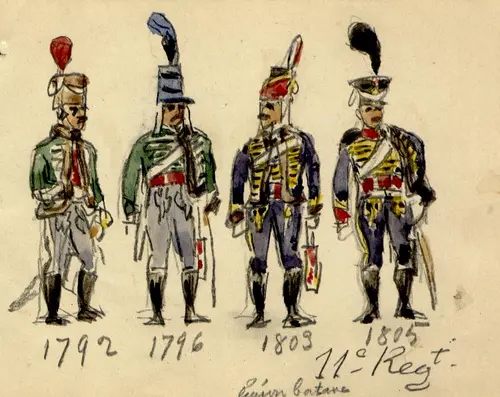 1792 1796 1803 1805
11e Regt.
batave